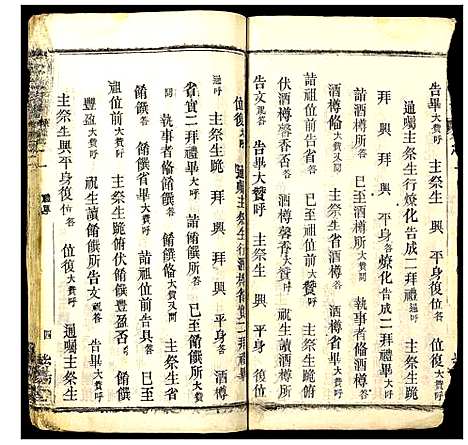 告畢大贊呼 主祭生 興 平身復位答
通囑主祭生行燎化告成二拜禮通呼 主祭生跪
拜 興 拜 興 平身答 燎化告成二拜禮畢大贊呼
詣酒樽所答 已至酒樽所大贊呼 執事者脩酒樽答
酒樽脩大贊又問 主祭生省酒樽答 酒樽省大贊呼
詣祖位前告省答 已至祖位前大贊呼 主祭生跪俯
伏酒樽馨香否答 酒樽馨香大贊呼 祝生讀酒樽所
告文祝答 告畢大贊呼 主祭生 興 平身 復位
位復大贊呼 通囑主祭生行酒樽省實二拜禮
通呼 主祭生跪 拜 興 拜 興 平身答 酒樽
省實二拜禮畢大贊呼 詣餚饌所答 已至餚饌所大贊
問 執事者脩餚饌答 餚饌脩大贊又問 主祭生省
餚饌答 餚饌省大贊呼 詣祖位前告具答 已至
祖位前大贊呼 主祭生跪俯伏餚饌豐盈否答 餚饌
豐盈大贊呼 祝生讀餚饌所告文祝答 告畢大贊呼
主祭生興平身復位答 位復大贊呼 通囑主祭生
四